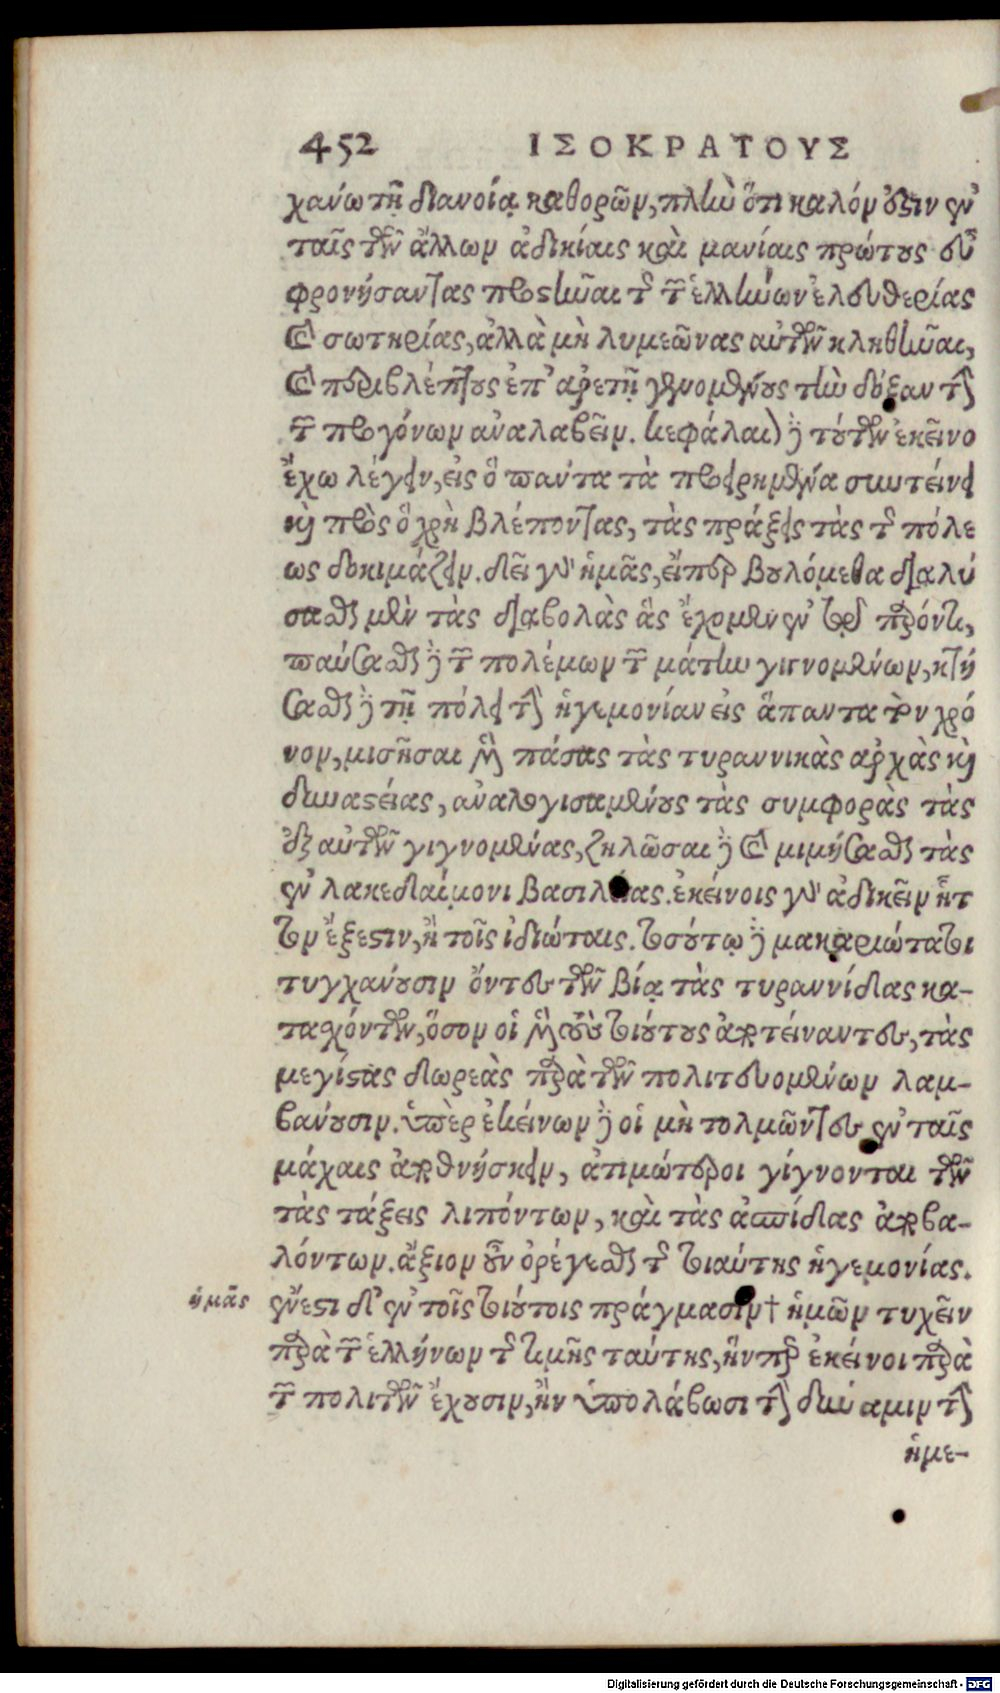 452 ΙΣΟΚΡΑΤΟΥΣ
χάνω τῇ διανοίᾳ καθορῶν, πλὴν ὅτι καλόν ἐστιν ἐν
ταῖς τῶν ἄλλων ἀδικίαις καὶ μανίαις πρώτους εὖ
φρονήσαντας προστῆναι τῆς τῶν ἑλλήνων ἐλευθερίας
καὶ σωτηρίας, ἀλλὰ μὴ λυμεῶνας αὐτῶν κληθῆναι,
καὶ περιβλέπτους ἐπ' ἀρετῇ γενομένους τὴν δόξαν τὴν
τῶν προγόνων ἀναλαβεῖν. κεφάλαιον δὲ τούτων ἐκεῖνο
ἔχω λέγειν, εἰς ὃ πάντα τὰ προειρημένα συντείνει
καὶ πρὸς ὃ χρὴ βλέποντας, τὰς πράξεις τὰς τῆς πόλε
ως δοκιμάζειν. δεῖ γὰρ ἡμᾶς, εἴπερ βουλόμεθα διαλύ
σασθαι μὲν τὰς διαβολὰς ἃς ἔχομεν ἐν τῷ παρόντι,
παύσασθαι δὲ τῶν πολέμων τῶν μάτην γιγνομένων, κτή
σασθαι δὲ τῇ πόλει τὴν ἡγεμονίαν εἰς ἅπαντα τὸν χρό
νον, μισῆσαι μὲν πάσας τὰς τυραννικὰς ἀρχὰς καὶ
δυναστείας, ἀναλογισαμένους τὰς συμφορὰς τὰς
ἐξ αὐτῶν γιγνομένας, ζηλῶσαι δὲ καὶ μιμήσασθαι τὰς
ἐν λακεδαίμονι βασιλείας. ἐκείνοις γὰρ ἀδικεῖν ἧτ
τον ἔξεστιν, ἢ τοῖς ἰδιώταις. τοσούτῳ δὲ μακαριώτατοι
τυγχάνουσιν ὄντες τῶν βίᾳ τὰς τυραννίδας κα-
τασχόντων, ὅσον οἱ μὲν τοὺς τοιούτους ἀποτείναντες, τὰς
μεγίστας δωρεὰς παρὰ τῶν πολιτευομένων λαμ-
βάνουσιν. ὑπὲρ ἐκείνων δὲ οἱ μὴ τολμῶντες ἐν ταῖς
μάχαις ἀποθνήσκειν, ἀτιμώτεροι γίγνονται τῶν
τὰς τάξεις λιπόντων, καὶ τὰς ἀσπίδας ἀποβα-
λόντων. ἄξιον οὖν ὀρέγεσθαι τῆς τοιαύτης ἡγεμονίας.
ἡμᾶς ἔνεστι δ' ἐν τοῖς τοιούτοις πράγμασιν † ἡμῶν τυχεῖν
παρὰ τῶν ἑλλήνων τῆς τιμῆς ταύτης, ἥνπερ ἐκεῖνοι παρὰ
τῶν πολιτῶν ἔχουσιν, ἢν ὑπολάβωσι τὴν δύναμιν τὴν
ἡμε-
Digitalisierung gefördert durch die Deutsche Forschungsgemeinschaft - DFG